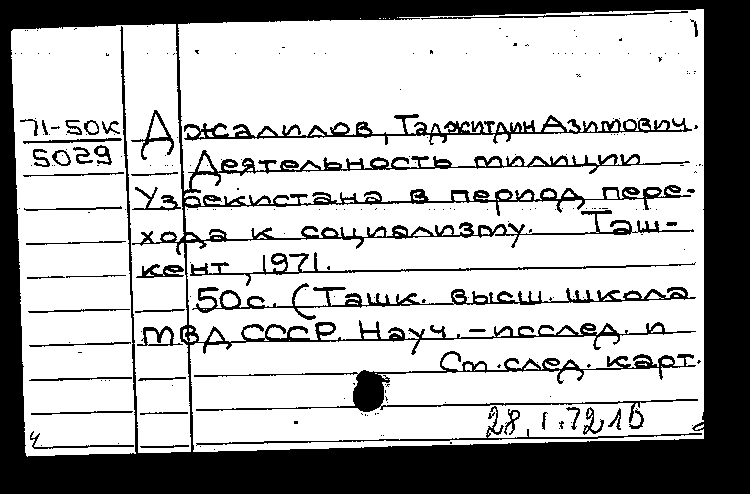 71-50К
5029
Джалилов, Таджитдин Азимович.
Деятельность милиции
Узбекистана в период пере-
хода к социализму. Таш-
кент, 1971.
50с. (Ташк. высш. школа
МВД СССР. Науч.-исслед. и
См. след. карт.
28.1.72 1б
ч